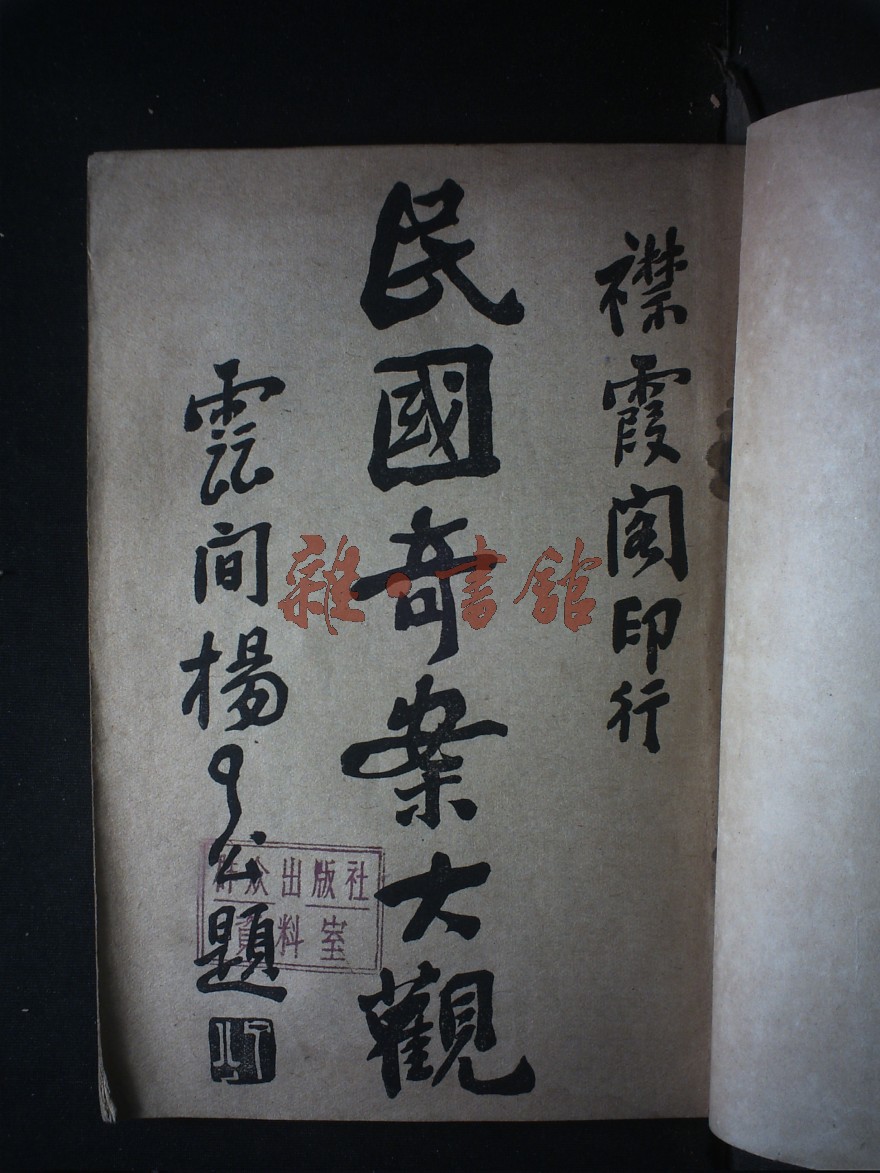 襟霞阁印行
民國奇案大觀
雲间楊了公題
了公
群众出版社
資料室
雜·書館